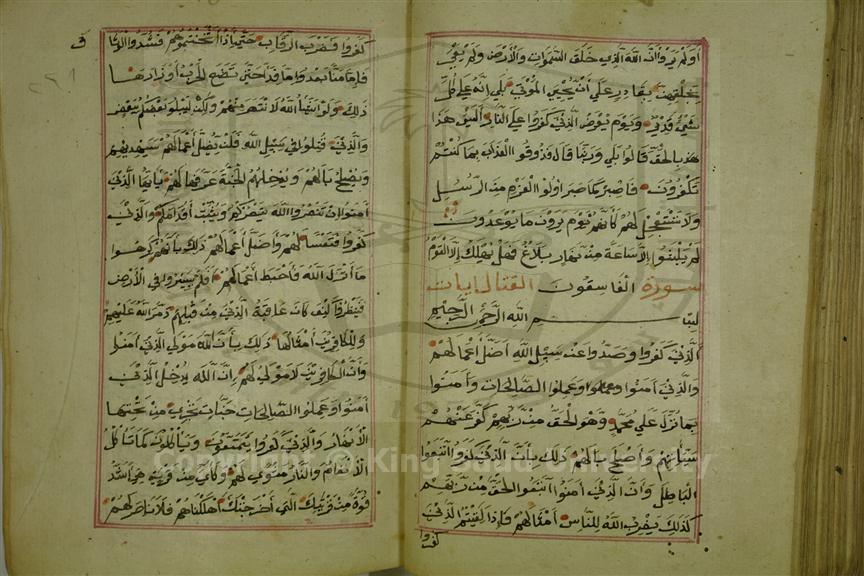 اولم يروا ان الله الذي خلق السموات والارض ولم يعي
بخلقهن بقادر علي ان يحيي الموتي بلي انه علي كل
شيء قدير ويوم يعرض الذين كفروا علي النار اليس هذا
هذا بالحق قالوا بلي وربنا قال فذوقوا العذاب بما كنتم
تكفرون فاصبر كما صبر اولوا العزم من الرسل
ولا تستعجل لهم كانهم يوم يرون ما يوعدون
لم يلبثوا الا ساعة من نهار بلاغ فهل يهلك الا القوم
سورة الفاسقون القتال ايات
بسم الله الرحمن الرحيم
الذين كفروا وصدوا عن سبيل الله اضل اعمالهم
والذين امنوا وعملوا وعملوا الصالحات وامنوا
بما نزل علي محمد وهو الحق من ربهم كفر عنهم
سيئاتهم واصلح بالهم ذلك بان الذين كفروا اتبعوا
الباطل وان الذين امنوا اتبعوا الحق من ربهم
كذلك يضرب الله للناس امثالهم فاذا لقيتم الذين
كفروا
كفروا فضرب الرقاب حتي اذا اثخنتموهم فشدوا الوثا
ق
فاما منا بعد واما فداء حتي تضع الحرب اوزارها
ذلك ولو يشاء الله لانتصر منهم ولكن ليبلو بعضكم ببعض
والذين قتلوا في سبيل الله فلن يضل اعمالهم سيهديهم
ويصلح بالهم ويدخلهم الجنة عرفها لهم يايها الذين
امنوا ان تنصروا الله ينصركم ويثبت اقدامكم والذين
كفروا فتعسا لهم واضل اعمالهم ذلك بانهم كرهوا
ما انزل الله فاحبط اعمالهم افلم يسيروا في الارض
فينظروا كيف كان عاقبة الذين من قبلهم دمر الله عليهم
وللكافرين امثالها ذلك بان الله مولي الذين امنوا
وان الكافرين لا مولي لهم ان الله يدخل الذين
امنوا وعملوا الصالحات جنات تجري من تحتها
الانهار والذين كفروا يتمتعون وياكلون كما تاكل
الانعام والنار مثوي لهم وكاين من قرية هي اشد
قوة من قريتك التي اخرجتك اهلكناهم فلا ناصر لهم
Copyright © King Saud University